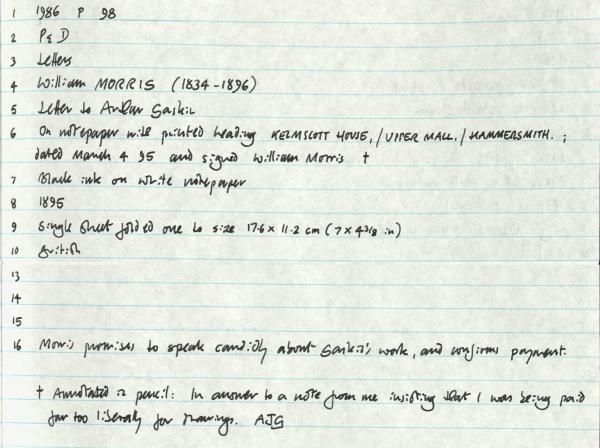 1 1986 P 98
2 P & D
3 Letters
4 William MORRIS (1834-1896)
5 Letter to Arthur Gaskin
6 On notepaper with printed heading KELMSCOTT HOUSE, / UPPER MALL, / HAMMERSMITH. ;
dated March 4 95 and signed William Morris †
7 Black ink on white notepaper
8 1895
9 Single sheet folded once to size 17.6 x 11.2 cm (7 x 4 3/8 in)
10 British
13
14
15
16 Morris promises to speak candidly about Gaskin's work, and confirms payment.
† Annotated in pencil: In answer to a note from me insisting that I was being paid
far too liberally for drawings. AJG